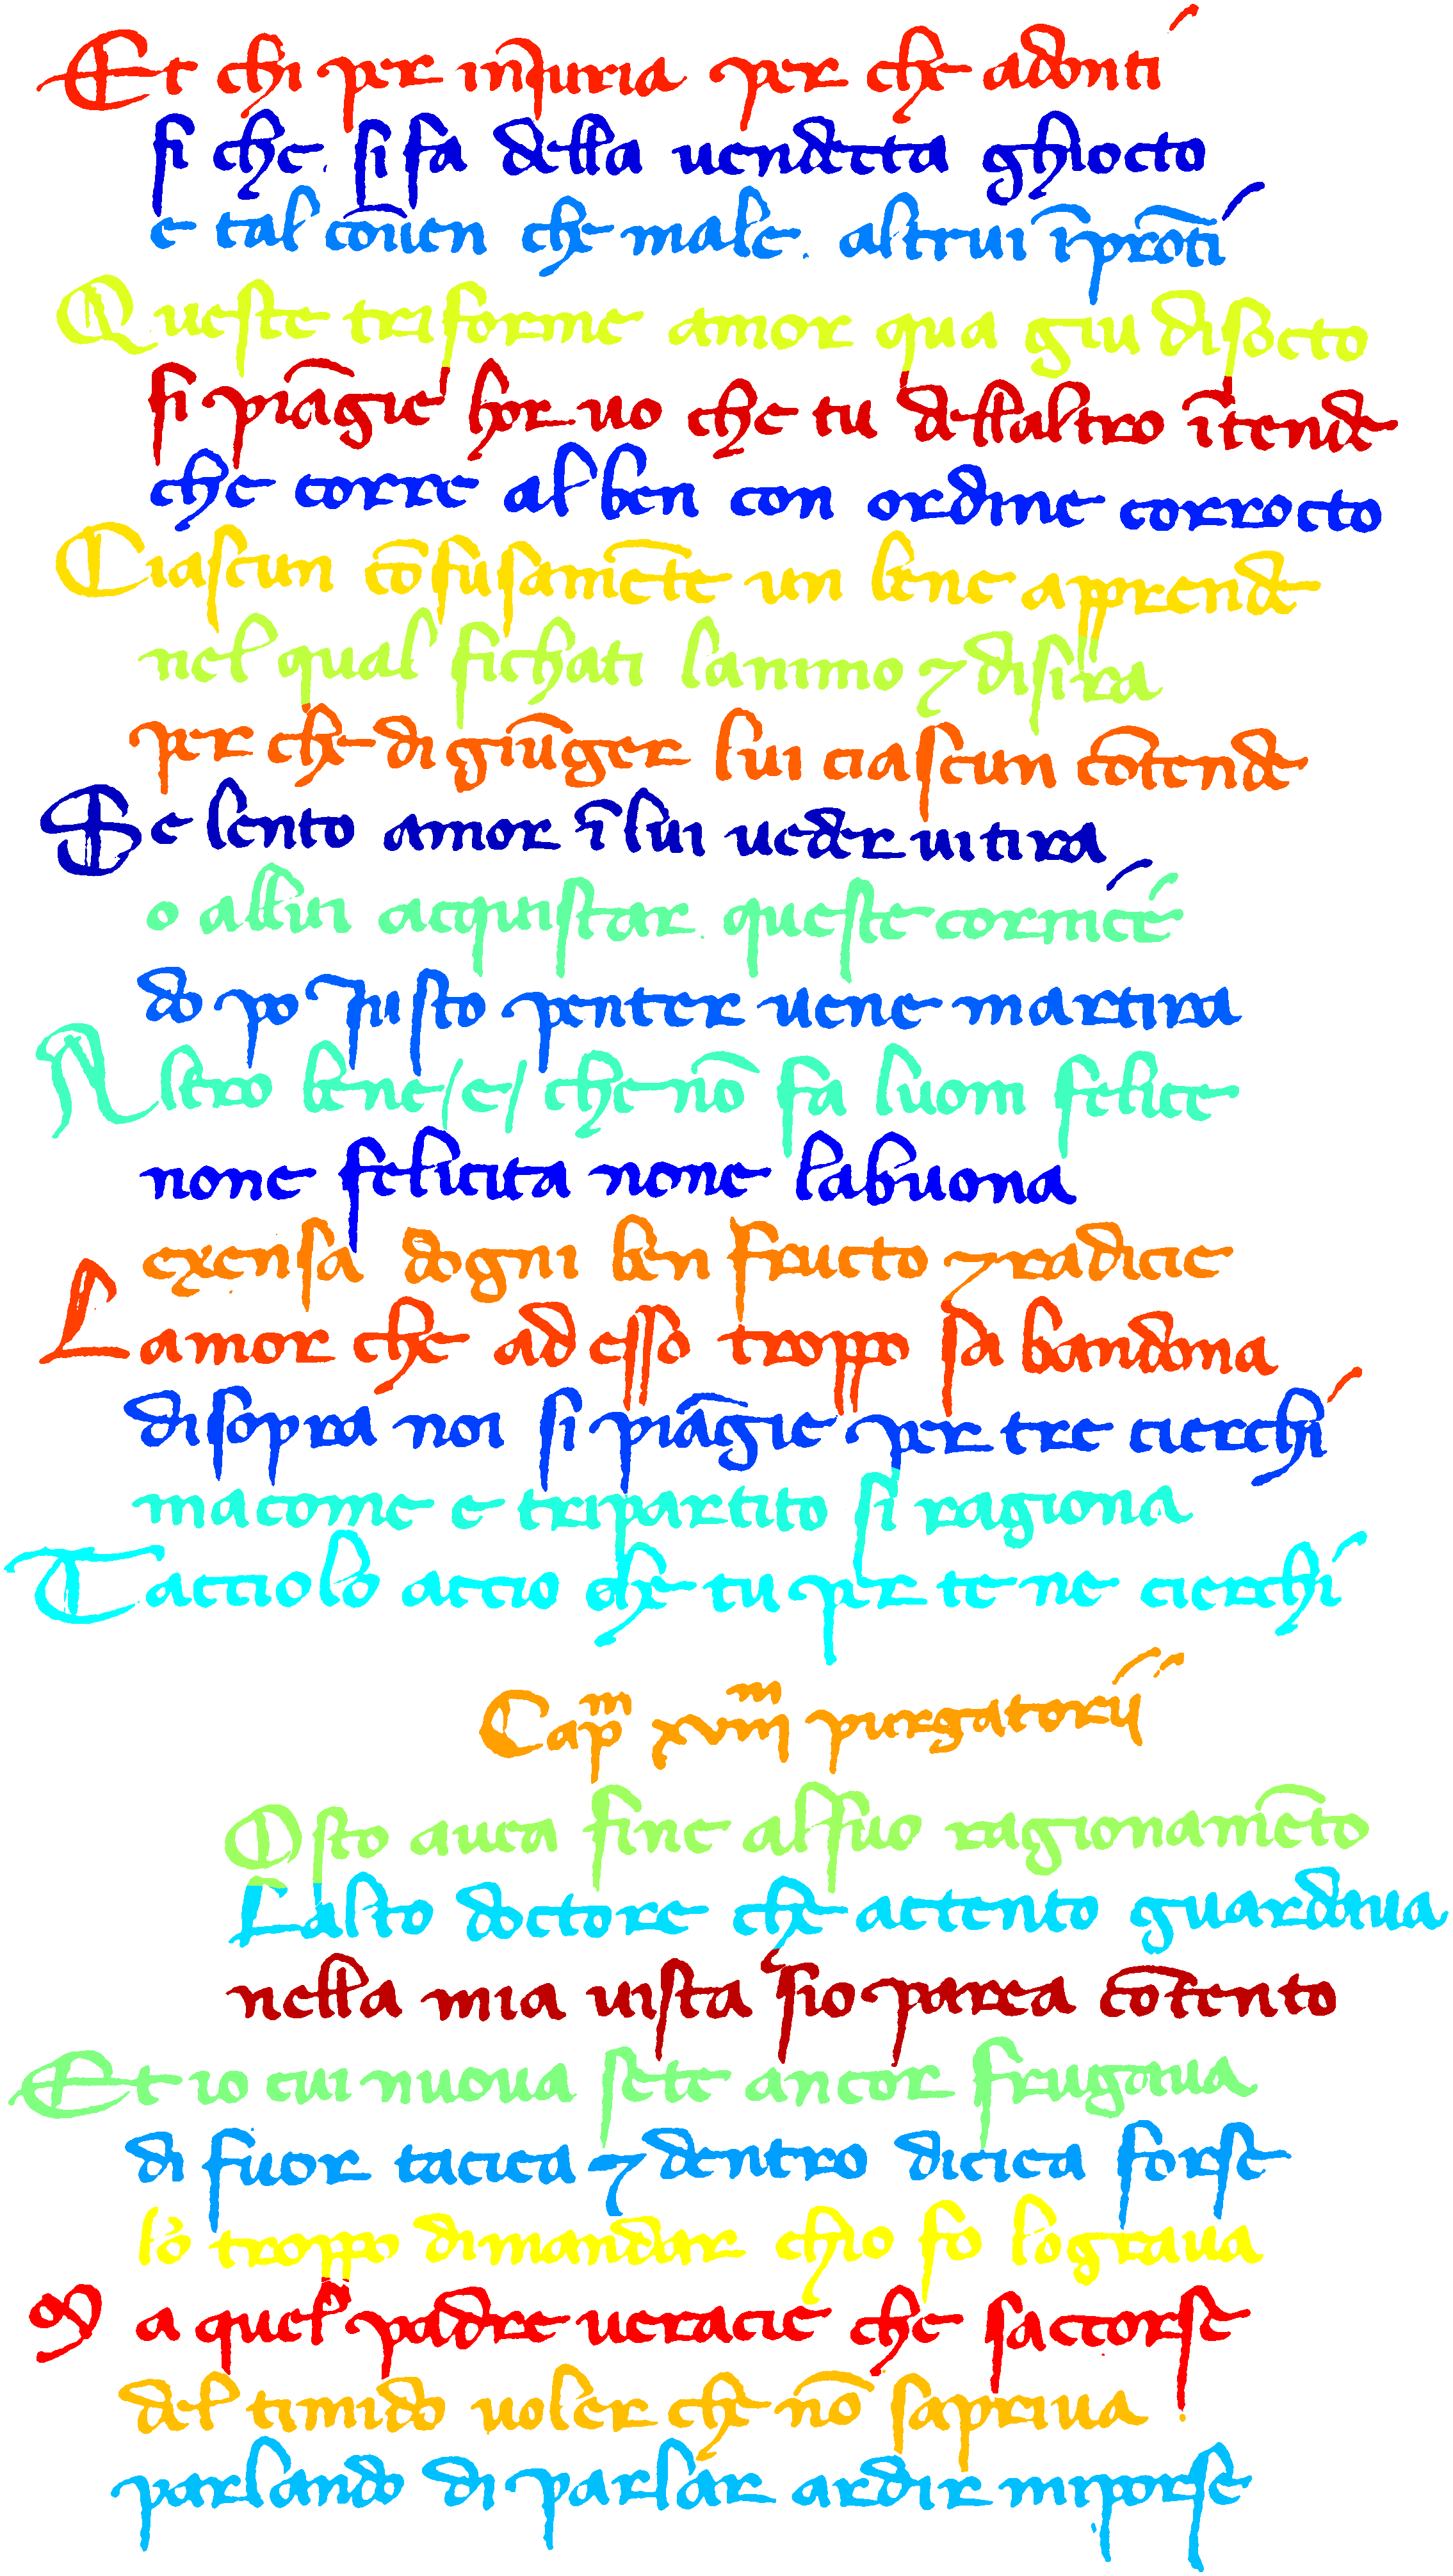 Et chi per inJuria per che adonti
si che. si fa della uendecta ghiocto
e tal cōuen che male. altrui īprōti
Queste triforme amor qua giu disocto
si piāgie hor uo che tu dellaltro ītende
che corre al ben con ordine corrocto
Ciascun cōfusamēte un bene apprende
nel qual sichati lanimo ⁊ disira
per che di giūger lui ciascun cōtende
Se lento amor ī lui ueder ui tira
o allui acquistar. queste cornicé
do po Justo penter uene martira
Altro bene/e/ che nō fa luom felice
none felicita none labuona
exensa dogni ben fructo ⁊ radicie
Lamor che ad esso troppo sa bandona
disopra noi si piāgie per tre cierchi
ma come e tripartito si ragiona
Tacciolo accio che tu per te ne cierchi
Capᵐ xviiiᵐ purgatorii
Osto auea fine al suo ragionamēto
Lalto doctore che actento guardaua
nella mia uista sio parea cōtento
Et io cui nuoua sete ancor frugaua
di fuor taciea ⁊ dentro diciea forse
lo troppo dimandar chio fo lo graua
Ma quel padre ueracie che saccorse
del timido uoler che nō sapriua
parlando di parlar ardir mi porse